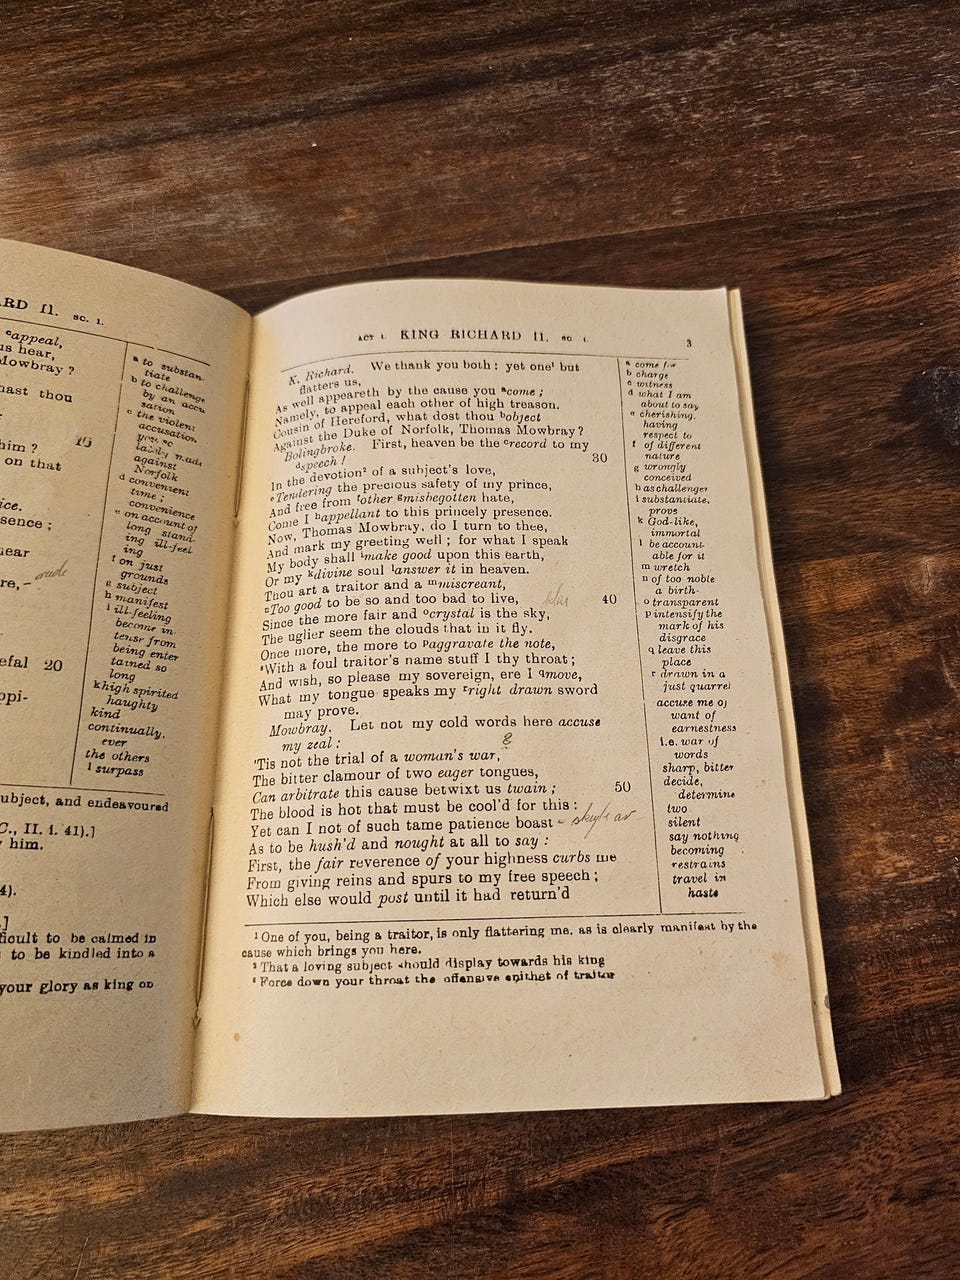 RD II. SC. 1.
ᵉappeal,
us hear,
Mowbray ?
hast thou
him ? 15
on that
ice.
sence ;
hear
re, - crude
efal 20
ppi-
a to substan-
tiate
b to challenge
by an accu
sation
c the violent
accusation
you so
lately made
against
Norfolk
d convenient
time ;
convenience
e on account of
long stand-
ing ill-feel
ing
f on just
grounds
g subject
h manifest
i ill-feeling
become in-
tense from
being enter
tained so
long
k high spirited
haughty
kind
continually,
ever
the others
l surpass
ubject, and endeavoured
C., II. i. 41).]
him.
4).
]
ficult to be calmed in
to be kindled into a
your glory as king on
ACT I. KING RICHARD II. SC. I. 3
K. Richard. We thank you both : yet one¹ but
flatters us,
As well appeareth by the cause you ᵃcome ;
Namely, to appeal each other of high treason.
Cousin of Hereford, what dost thou ᵇobject
Against the Duke of Norfolk, Thomas Mowbray ?
Bolingbroke. First, heaven be the ᶜrecord to my
ᵈspeech ! 30
In the devotion² of a subject's love,
ᵉTendering the precious safety of my prince,
And free from ᶠother ᵍmisbegotten hate,
Come I ʰappellant to this princely presence.
Now, Thomas Mowbray, do I turn to thee,
And mark my greeting well ; for what I speak
My body shall ⁱmake good upon this earth,
Or my ᵏdivine soul ˡanswer it in heaven.
Thou art a traitor and a ᵐmiscreant,
ⁿToo good to be so and too bad to live, 40
Since the more fair and ᵒcrystal is the sky,
The uglier seem the clouds that in it fly.
Once more, the more to ᵖaggravate the note,
³With a foul traitor's name stuff I thy throat ;
And wish, so please my sovereign, ere I ᑫmove,
What my tongue speaks my ʳright drawn sword
may prove.
Mowbray. Let not my cold words here accuse
my zeal :
'Tis not the trial of a woman's war,
The bitter clamour of two eager tongues,
Can arbitrate this cause betwixt us twain ; 50
The blood is hot that must be cool'd for this :
Yet can I not of such tame patience boast -
As to be hush'd and nought at all to say :
First, the fair reverence of your highness curbs me
From giving reins and spurs to my free speech ;
Which else would post until it had return'd
a come for
b charge
c witness
d what I am
about to say
e cherishing.
having
respect to
f of different
nature
g wrongly
conceived
h as challenger
i substantiate,
prove
k God-like,
immortal
l be account-
able for it
m wretch
n of too noble
a birth-
o transparent
p intensify the
mark of his
disgrace
q leave this
place
r drawn in a
just quarrel
accuse me of
want of
earnestness
i.e. war of
words
sharp, bitter
decide,
determine
two
silent
say nothing
becoming
restrains
travel in
haste
¹ One of you, being a traitor, is only flattering me, as is clearly manifest by the
cause which brings you here.
² That a loving subject should display towards his king
³ Force down your throat the offensive epithet of traitor